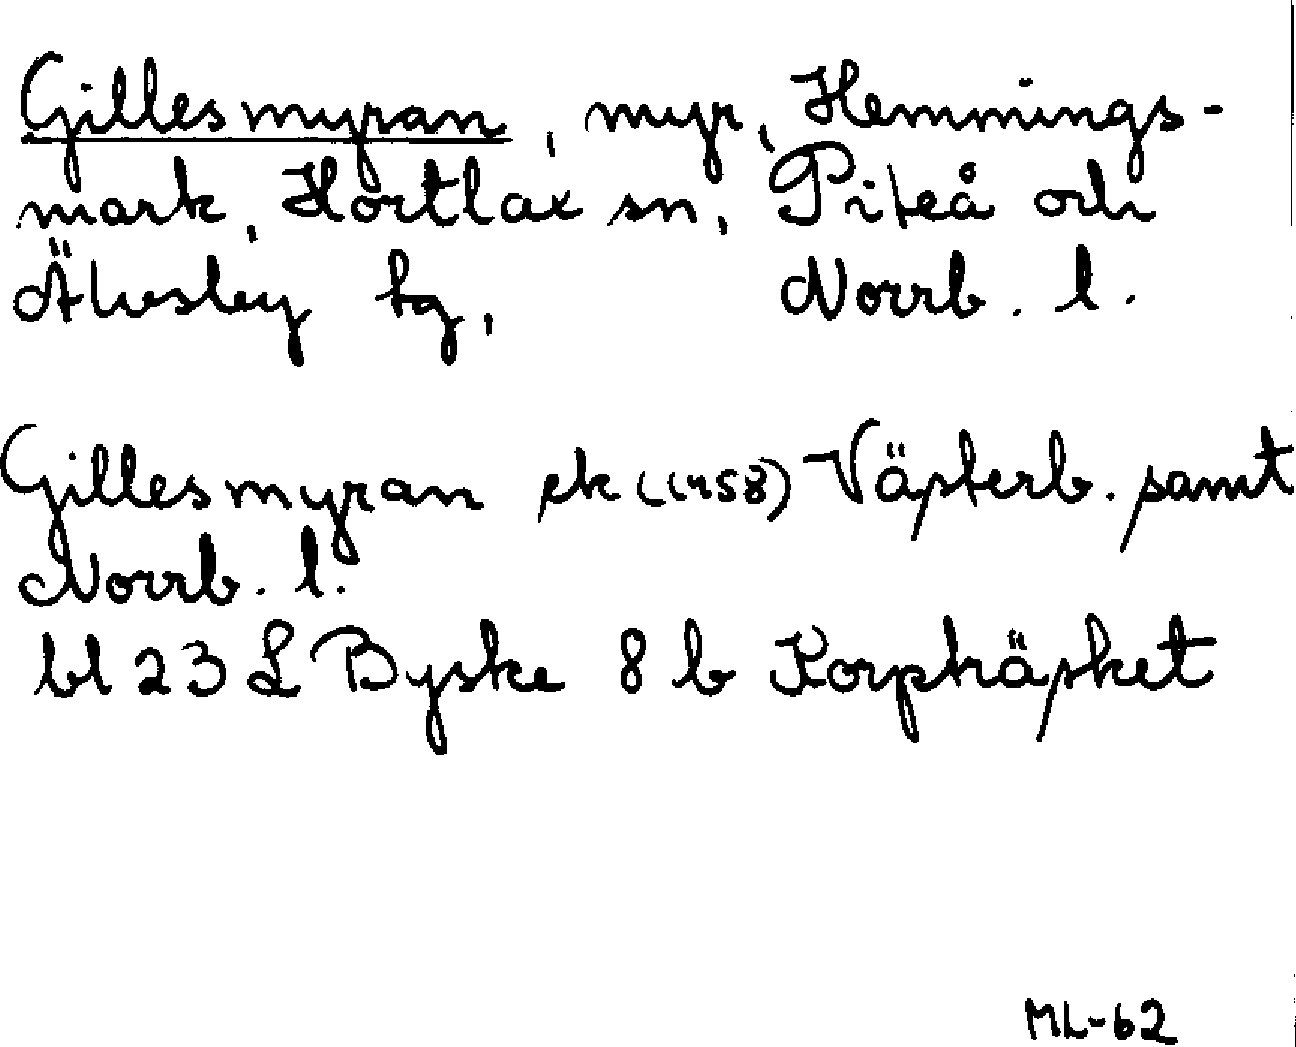 Gillesmyran, myr, Hemmings-
mark, Hortlax sn, Piteå och
Älvsbyn tg, Norrb. l.
Gillesmyran ek (1958) Västerb. samt
Norrb. l.
bl 23 L Byske 8 b Korpträsket
ML-62